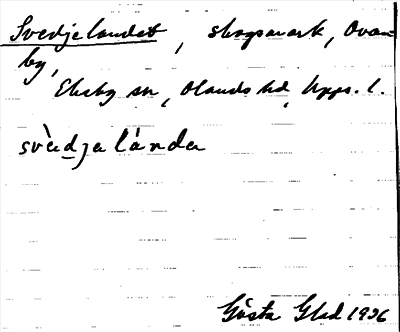 Svedjelandet, skogsmark, Ovan-
by,
Ekeby sn, Olands hd, Upps. l.
svὰdjalánda
Gösta Glad 1936